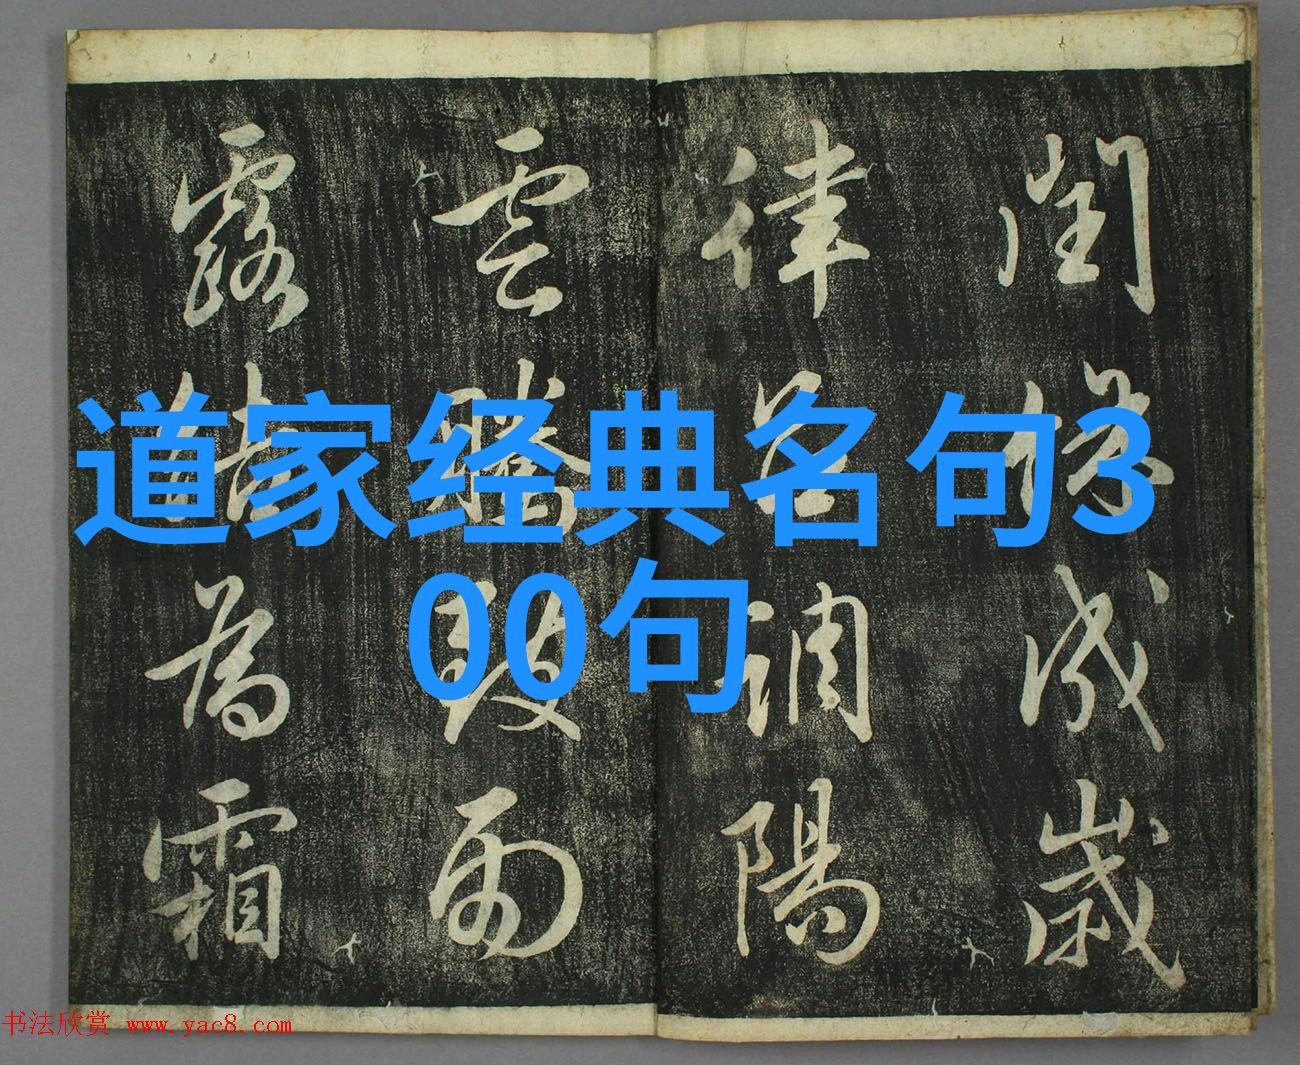 閏餘成歲
律呂調陽
雲騰致雨
露結為霜
道家经典名句3
00句
书法欣赏 www.yac8.com